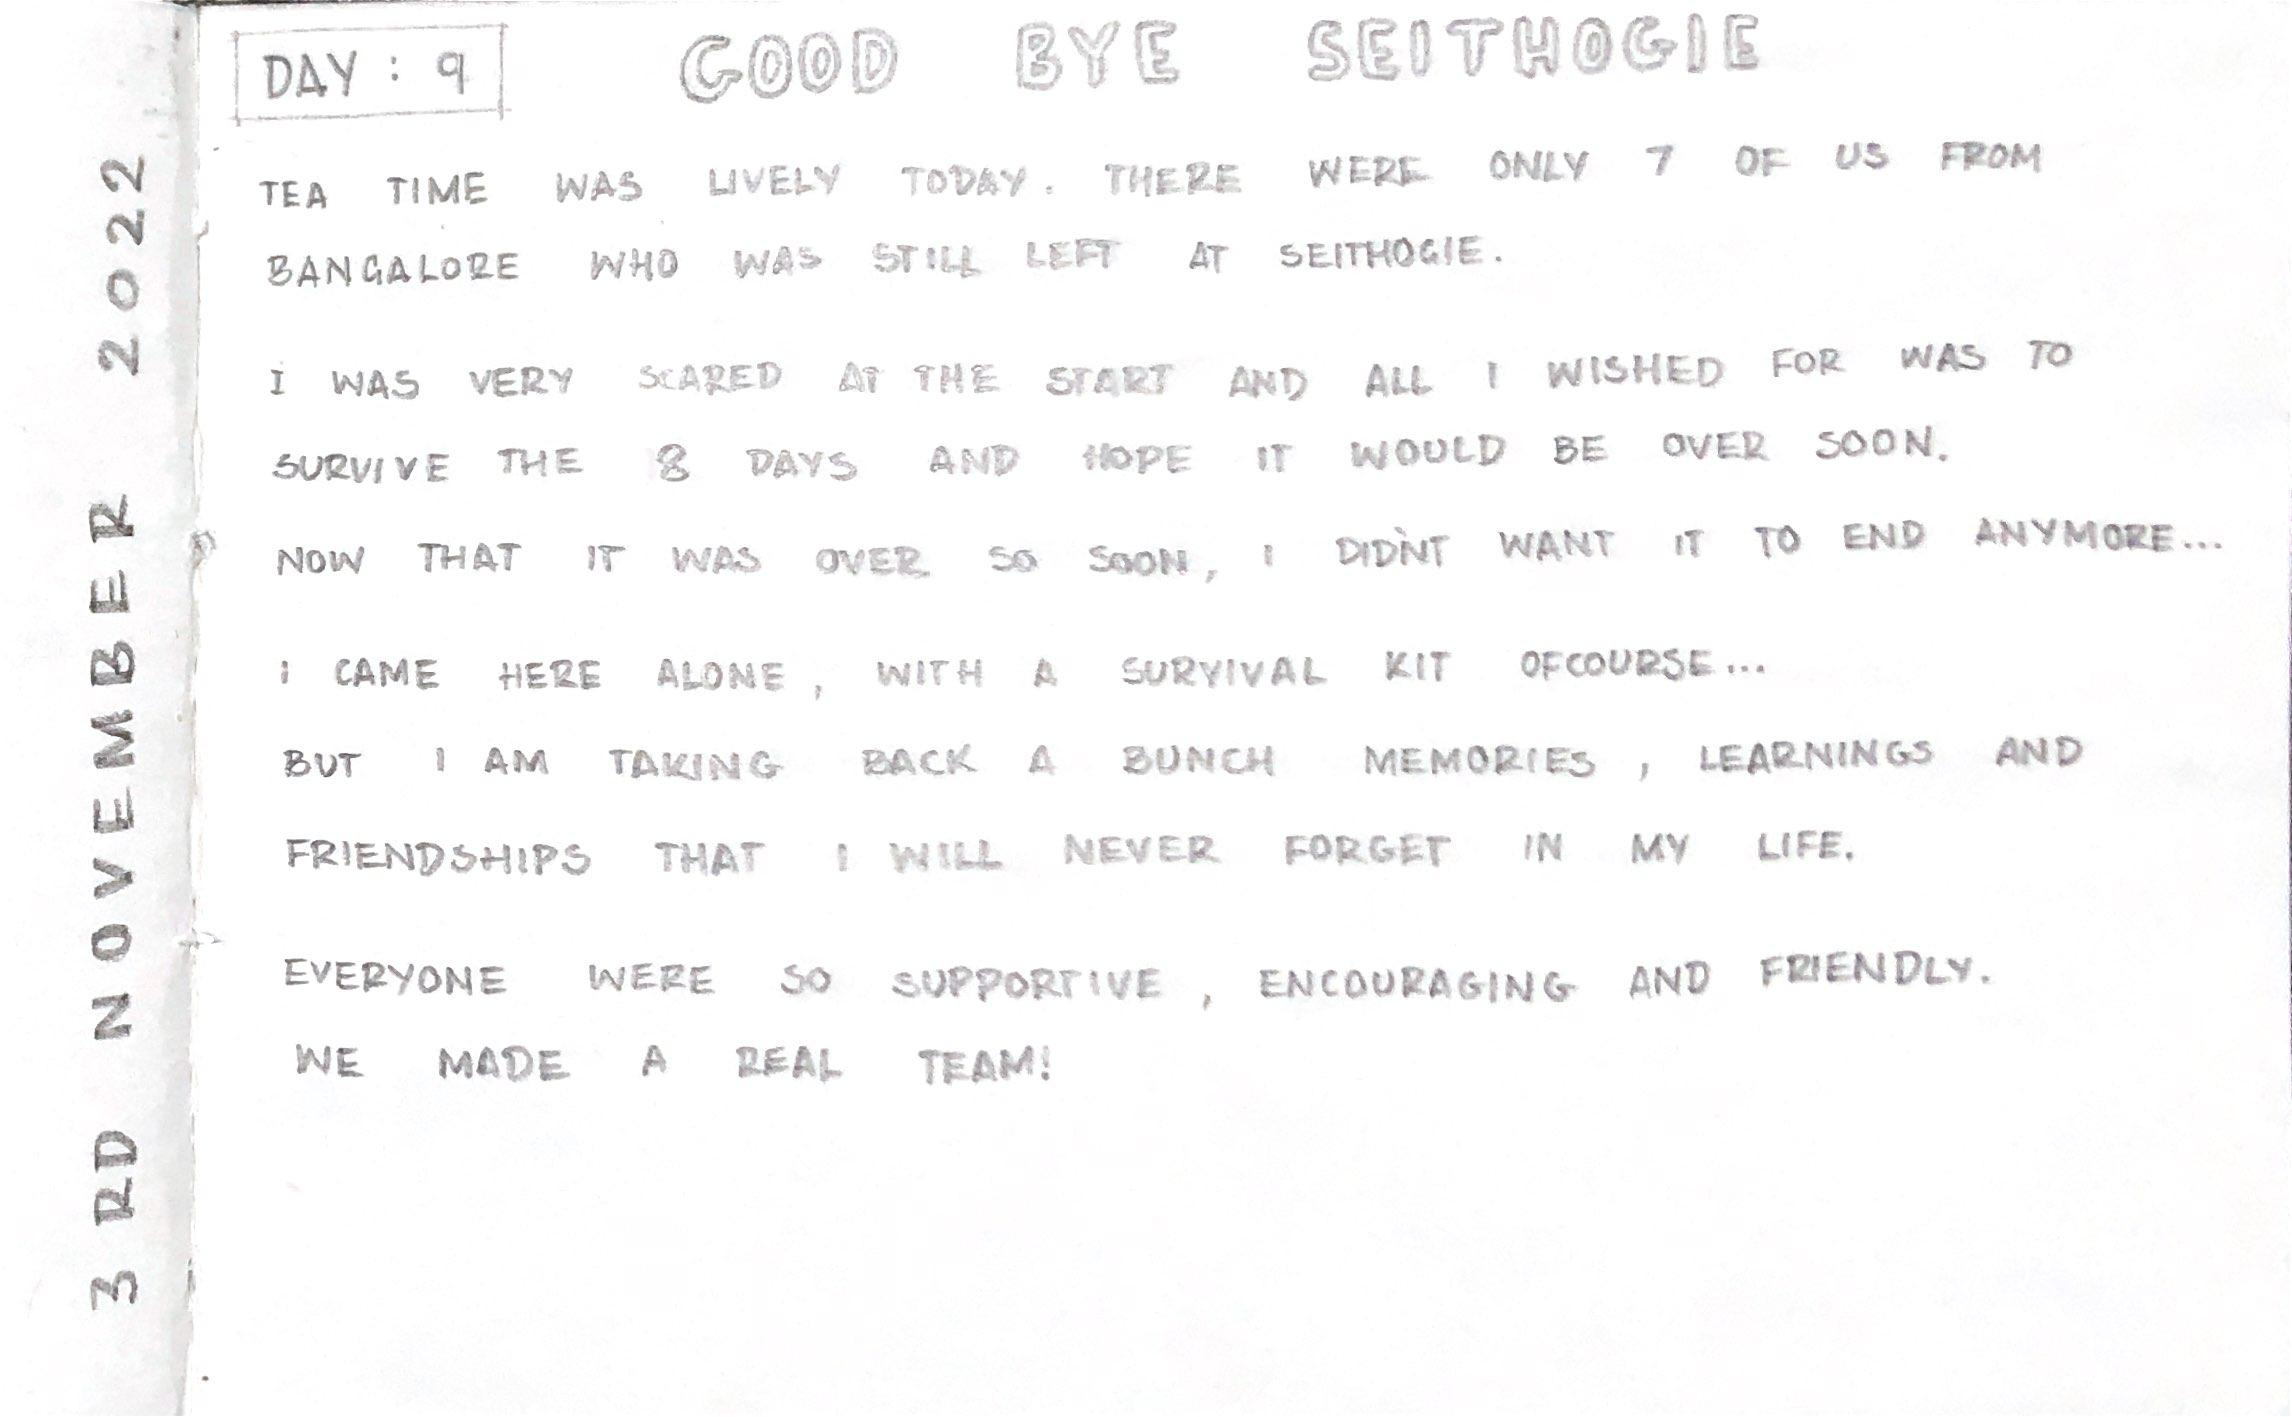 3 RD NOVEMBER 2022
DAY : 9
GOOD BYE SEITHOGIE
TEA TIME WAS LIVELY TODAY. THERE WERE ONLY 7 OF US FROM
BANGALORE WHO WAS STILL LEFT AT SEITHOGIE.
I WAS VERY SCARED AT THE START AND ALL I WISHED FOR WAS TO
SURVIVE THE 8 DAYS AND HOPE IT WOULD BE OVER SOON.
NOW THAT IT WAS OVER SO SOON, I DIDN'T WANT IT TO END ANYMORE...
I CAME HERE ALONE, WITH A SURVIVAL KIT OFCOURSE...
BUT I AM TAKING BACK A BUNCH MEMORIES, LEARNINGS AND
FRIENDSHIPS THAT I WILL NEVER FORGET IN MY LIFE.
EVERYONE WERE SO SUPPORTIVE, ENCOURAGING AND FRIENDLY.
WE MADE A REAL TEAM!